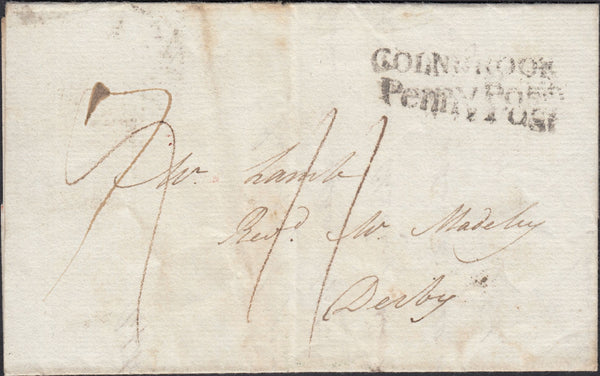 COLNBROOK
Penny Post
Mr. Lamb
Revd. Mr. Madeley
Derby